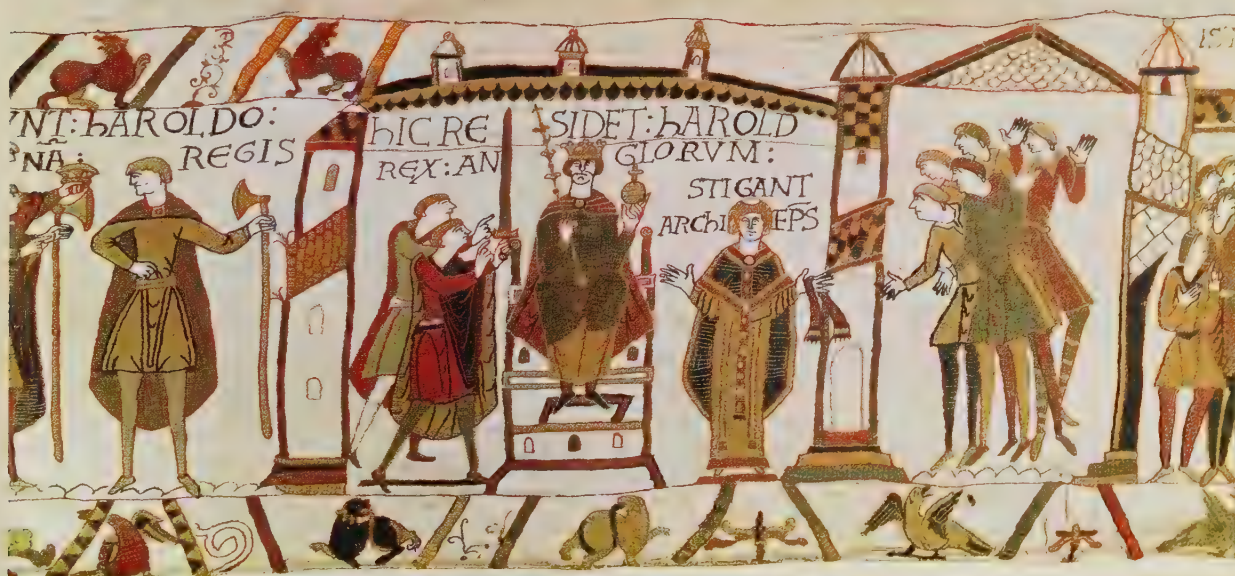 NT: hAROLDO:
NA: REGIS
hIC RE SIDET: hAROLD
REX: AN GLORVM:
STIGANT
ARChI EPS